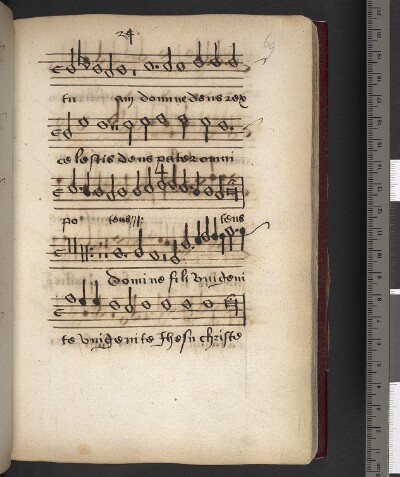 24.
69
tu am domine deus rex
celestis deus pater omni
po tens :||: tens
domine fili vnigeni
te vnigenite Jhesu christe